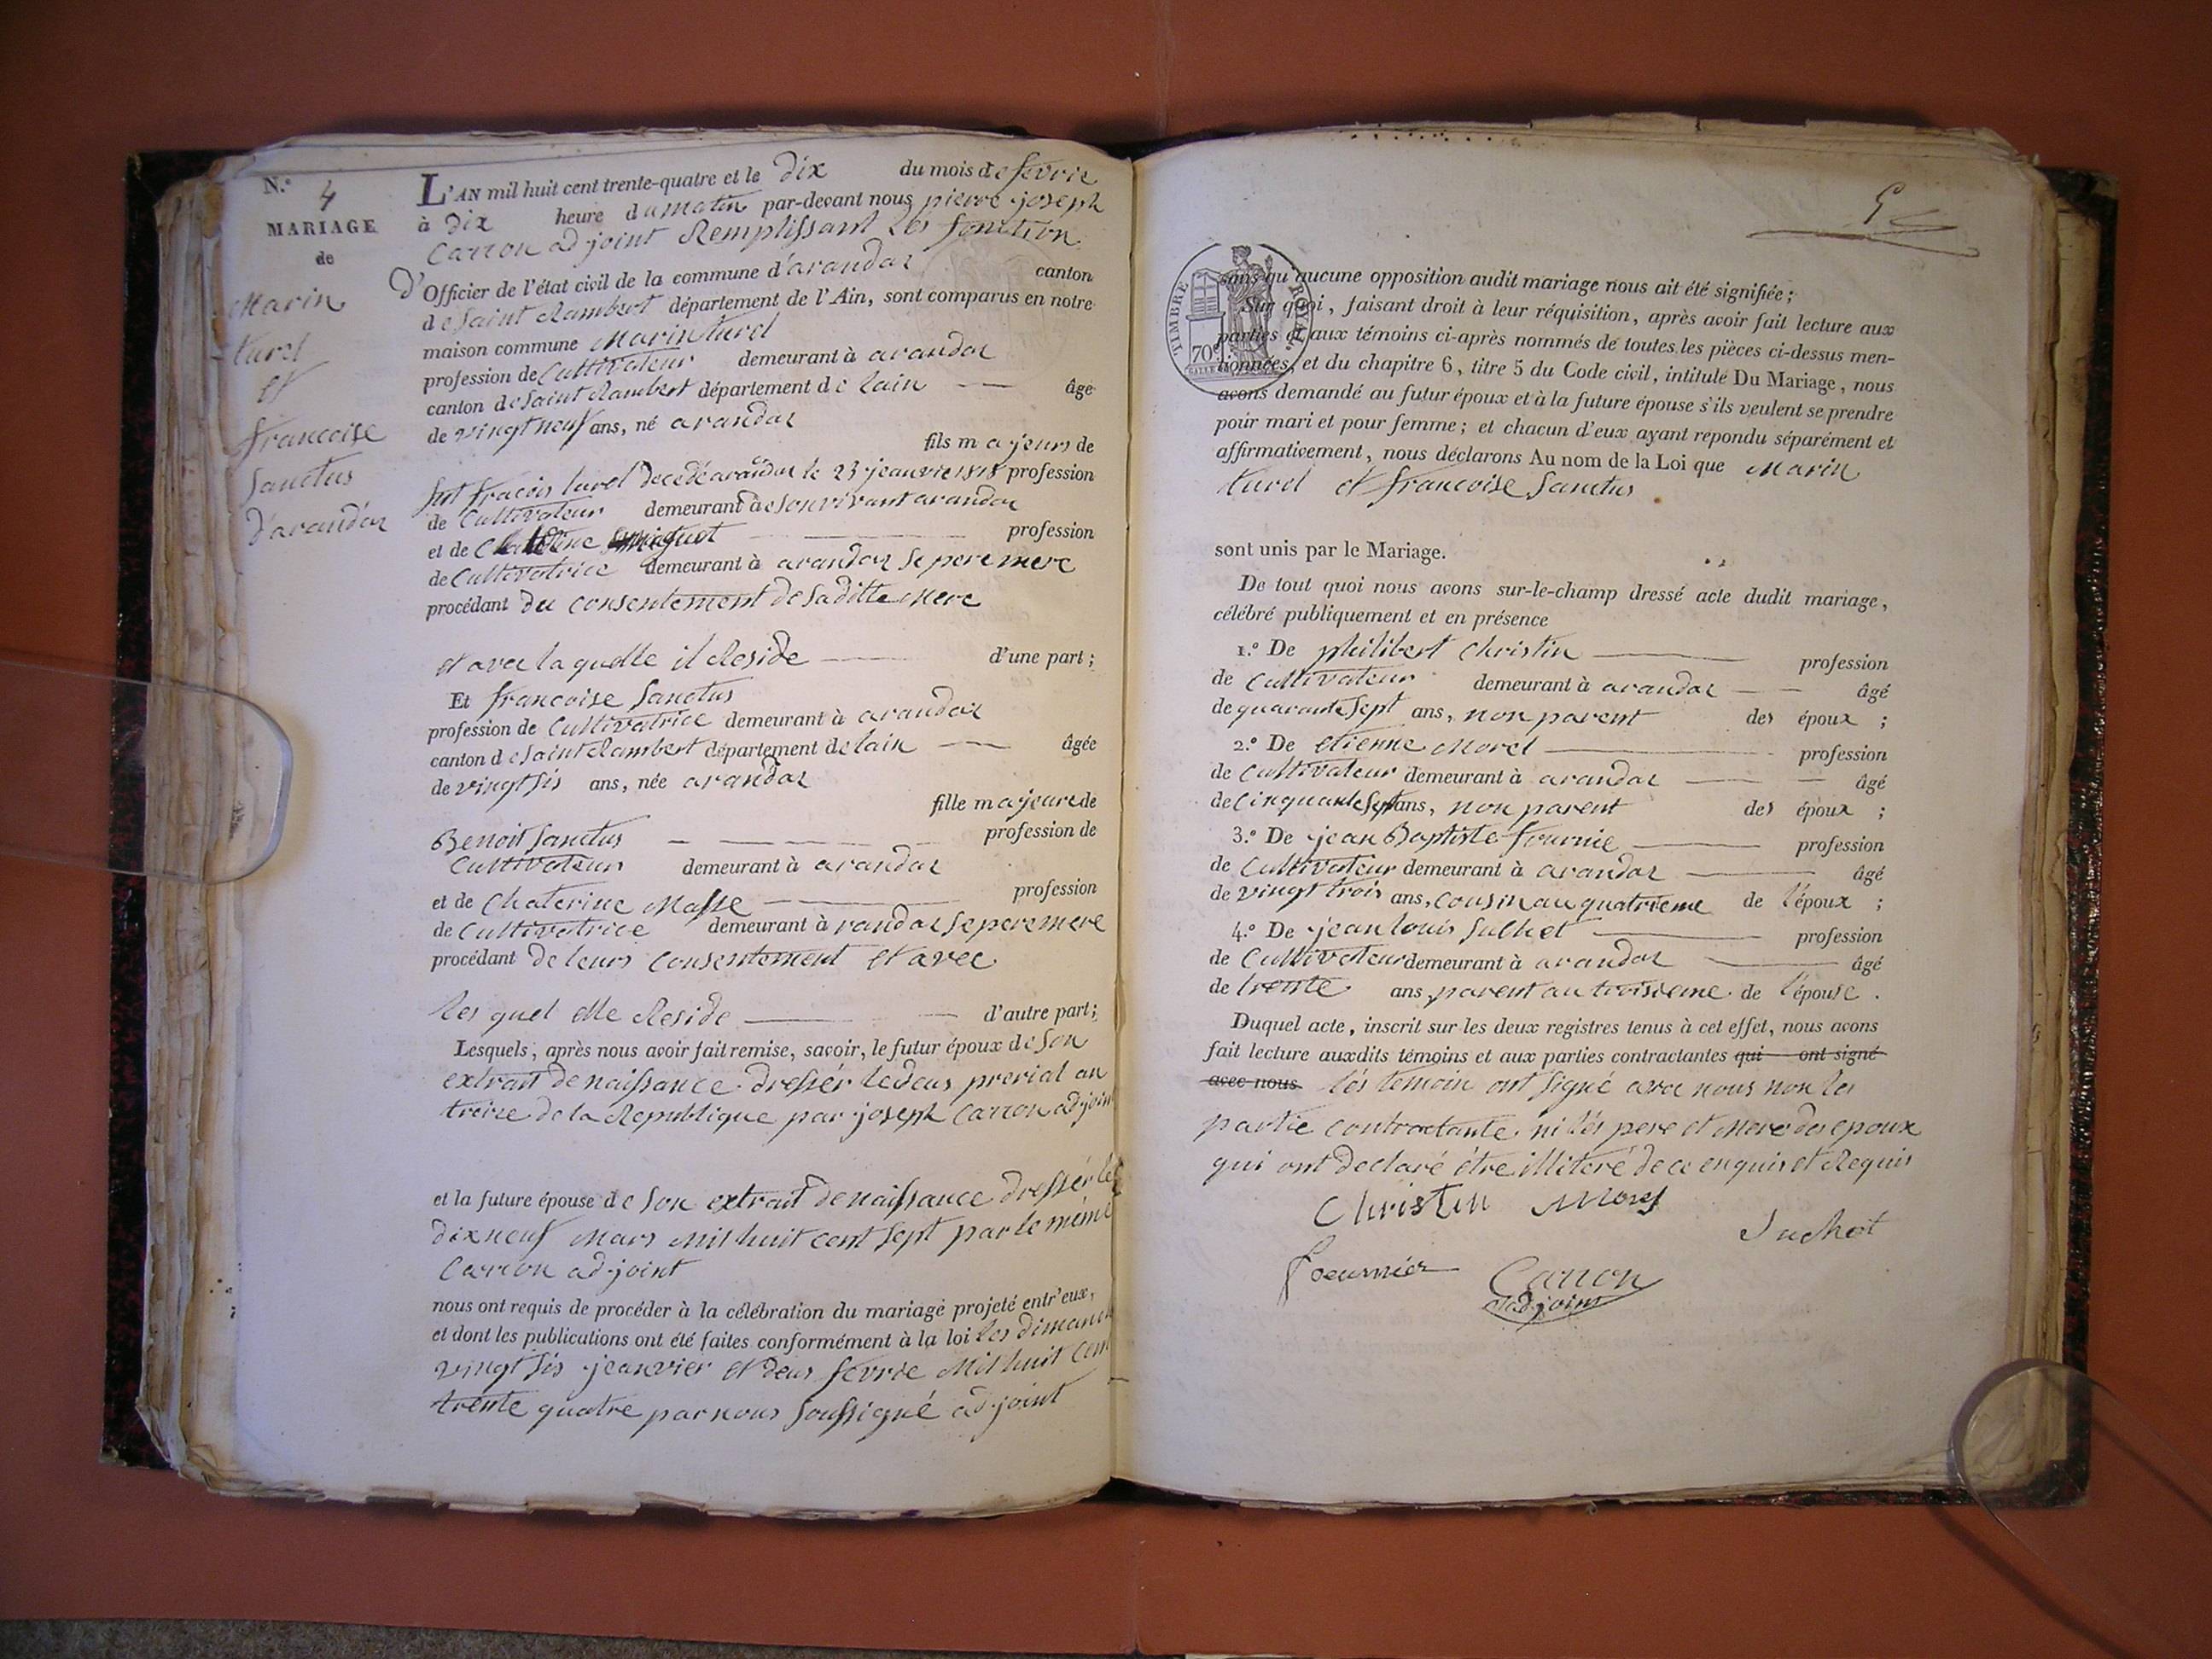 N.° 4
MARIAGE
de
Marin
turel
et
francoise
Sanctus
d'arandas
L'AN mil huit cent trente-quatre et le dix du mois de fevrie
à dix heure du matin par-devant nous pierre joseph
Carron adjoint Remplissant les fonction
d'Officier de l'état civil de la commune d'arandas canton
de saint Rambert département de l'Ain, sont comparus en notre
maison commune Marin turel
profession de Cultivateur demeurant à arandas
canton de saint Rambert département de lain âgé
de vingt neuf ans, né arandas
fils majeurs de
fut fracois turel decedé arandas le 23 jeanvie 1818 profession
de Cultivateur demeurant de son vivant arandas
et de profession
de Cultivatrice demeurant à arandas se pere mere
procédant du consentement de sa ditte mere
et avec la quelle il Reside d'une part;
Et francoise Sanctus
profession de Cultivatrice demeurant à arandas
canton de saint Rambert département de lain âgée
de vingt sis ans, née arandas
fille majeure de
Benoit Sanctus profession de
Cultivateur demeurant à arandas
et de Chaterine Masse profession
de Cultivatrice demeurant à randas se pere mere
procédant de leurs consentement et avec
les quel elle Reside d'autre part;
Lesquels, après nous avoir fait remise, savoir, le futur époux de son
extrait de naissance dressér le deus prerial an
treize de la Republique par joseph Carron adjoin
et la future épouse de son extrait de naissance dressér le
dix neuf mars mil huit cent sept par le mème
Carron adjoint
nous ont requis de procéder à la célébration du mariage projeté entr'eux,
et dont les publications ont été faites conformément à la loi les dimanch
vingt sis jeanvier et deus fevrie mil huit cent
trente quatre par nous soussigné adjoint
TIMBRE ROYAL
70c
sans qu'aucune opposition audit mariage nous ait été signifiée;
Sur quoi, faisant droit à leur réquisition, après avoir fait lecture aux
parties et aux témoins ci-après nommés de toutes les pièces ci-dessus men-
tionnées, et du chapitre 6, titre 5 du Code civil, intitulé Du Mariage, nous
avons demandé au futur époux et à la future épouse s'ils veulent se prendre
pour mari et pour femme; et chacun d'eux ayant répondu séparément et
affirmativement, nous déclarons Au nom de la Loi que Marin
turel et francoise Sanctus
sont unis par le Mariage.
De tout quoi nous avons sur-le-champ dressé acte dudit mariage,
célébré publiquement et en présence
1.° De philibert Christin profession
de Cultivateur demeurant à arandas âgé
de quarante sept ans, non parent des époux ;
2.° De etienne Morel profession
de Cultivateur demeurant à arandas âgé
de cinquante sept ans, non parent des époux ;
3.° De jean Baptiste fournie profession
de Cultivateur demeurant à arandas âgé
de vingt trois ans, cousin au quatrieme de l'époux ;
4.° De jean louis Suchet profession
de Cultivateur demeurant à arandas âgé
de trente ans, parent au troisieme de l'épouse .
Duquel acte, inscrit sur les deux registres tenus à cet effet, nous avons
fait lecture auxdits témoins et aux parties contractantes qui ont signé
avec nous. lés temoin ont signé avec nous non les
partie contractante ni lés pere et mere des epoux
qui ont declaré étre illiteré de ce enquis et Requis
Christin Morel
Suchet
foeurnier Carron
adjoint